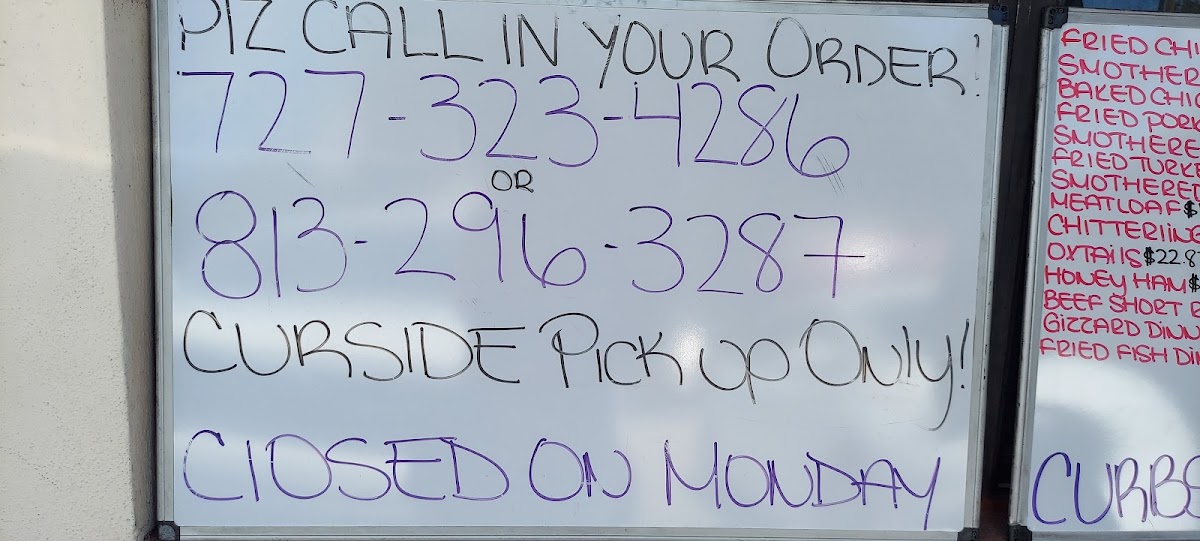 PLZ CALL IN YOUR ORDER!
727-323-4286
OR
813-296-3287
CURSIDE Pick up Only!
ClOSED ON MONDAY
FRIED CHI
SMOTHER
BAKED CHIC
FRIED PORK
SMOTHERE
FRIED TURKE
SMOTHERED
MEATLOAF $
CHITTERlING
OXTAilS $22.8
HONEY HAM $
BEEF SHORT R
GIZZARD DINN
FRIED FISH DIN
CURBS